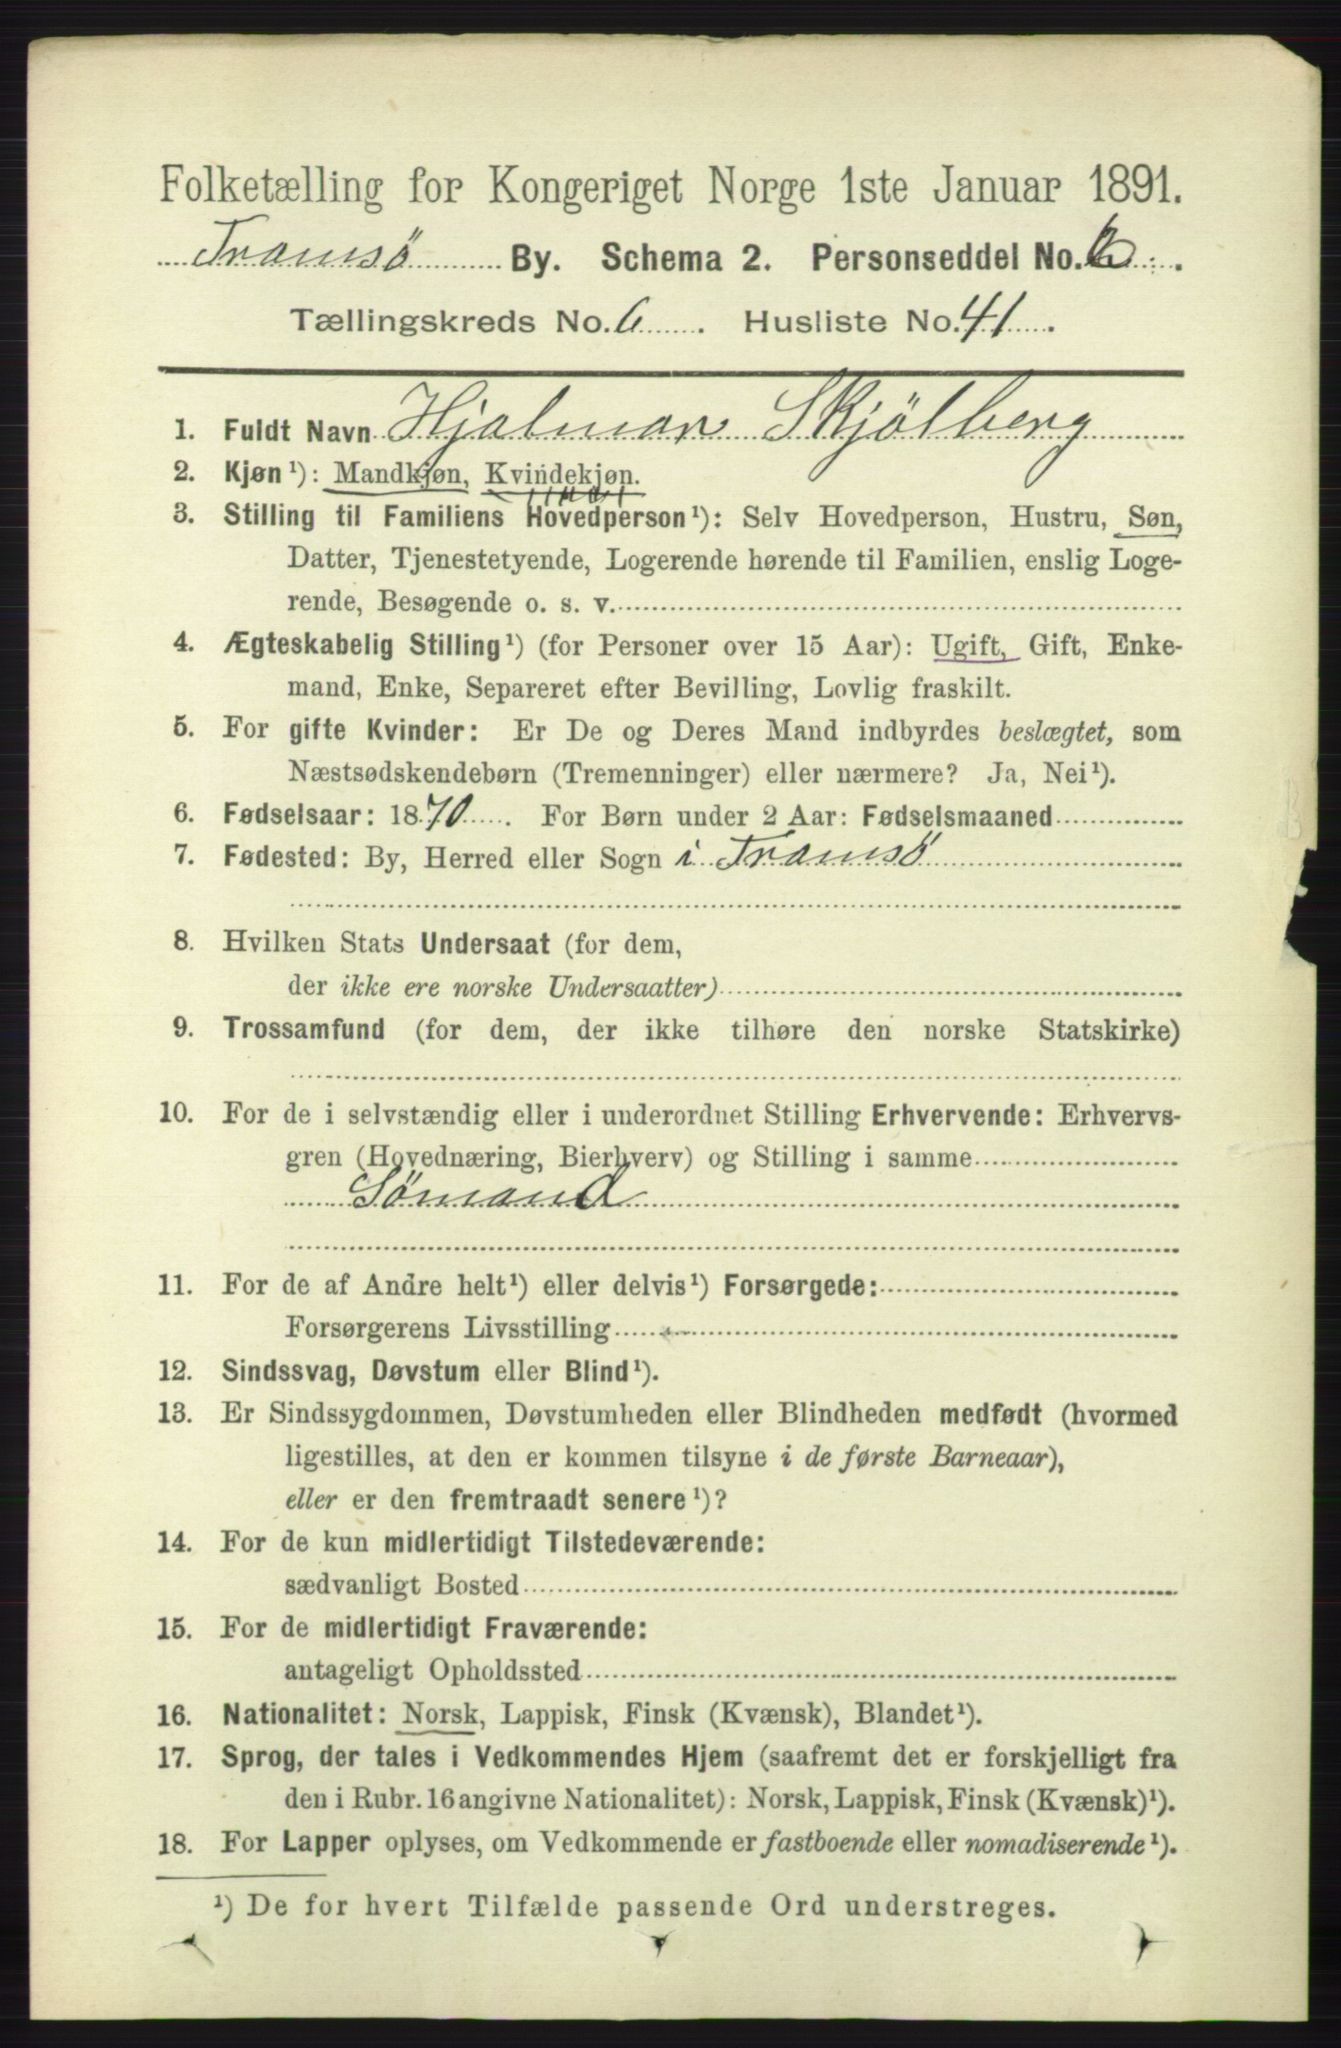 Folketælling for Kongeriget Norge 1ste Januar 1891.
Tromsö By. Schema 2. Personseddel No. 6.
Tællingskreds No. 6. Husliste No. 41.
1. Fuldt Navn Hjalmar Skjölberg
2. Kjøn¹): Mandkjøn, Kvindekjøn.
3. Stilling til Familiens Hovedperson¹): Selv Hovedperson, Hustru, Søn,
Datter, Tjenestetyende, Logerende hørende til Familien, enslig Loge-
rende, Besøgende o. s. v.
4. Ægteskabelig Stilling¹) (for Personer over 15 Aar): Ugift, Gift, Enke-
mand, Enke, Separeret efter Bevilling, Lovlig fraskilt.
5. For gifte Kvinder: Er De og Deres Mand indbyrdes beslægtet, som
Næstsødskendebørn (Tremenninger) eller nærmere? Ja, Nei¹).
6. Fødselsaar: 1870. For Børn under 2 Aar: Fødselsmaaned
7. Fødested: By, Herred eller Sogn i Tromsö
8. Hvilken Stats Undersaat (for dem,
der ikke ere norske Undersaatter)
9. Trossamfund (for dem, der ikke tilhøre den norske Statskirke)
10. For de i selvstændig eller i underordnet Stilling Erhvervende: Erhvervs-
gren (Hovednæring, Bierhverv) og Stilling i samme
Sömand
11. For de af Andre helt¹) eller delvis¹) Forsørgede:
Forsørgerens Livsstilling
12. Sindssvag, Døvstum eller Blind¹).
13. Er Sindssygdommen, Døvstumheden eller Blindheden medfødt (hvormed
ligestilles, at den er kommen tilsyne i de første Barneaar),
eller er den fremtraadt senere¹)?
14. For de kun midlertidigt Tilstedeværende:
sædvanligt Bosted
15. For de midlertidigt Fraværende:
antageligt Opholdssted
16. Nationalitet: Norsk, Lappisk, Finsk (Kvænsk), Blandet¹).
17. Sprog, der tales i Vedkommendes Hjem (saafremt det er forskjelligt fra
den i Rubr. 16 angivne Nationalitet): Norsk, Lappisk, Finsk (Kvænsk)¹).
18. For Lapper oplyses, om Vedkommende er fastboende eller nomadiserende¹).
¹) De for hvert Tilfælde passende Ord understreges.